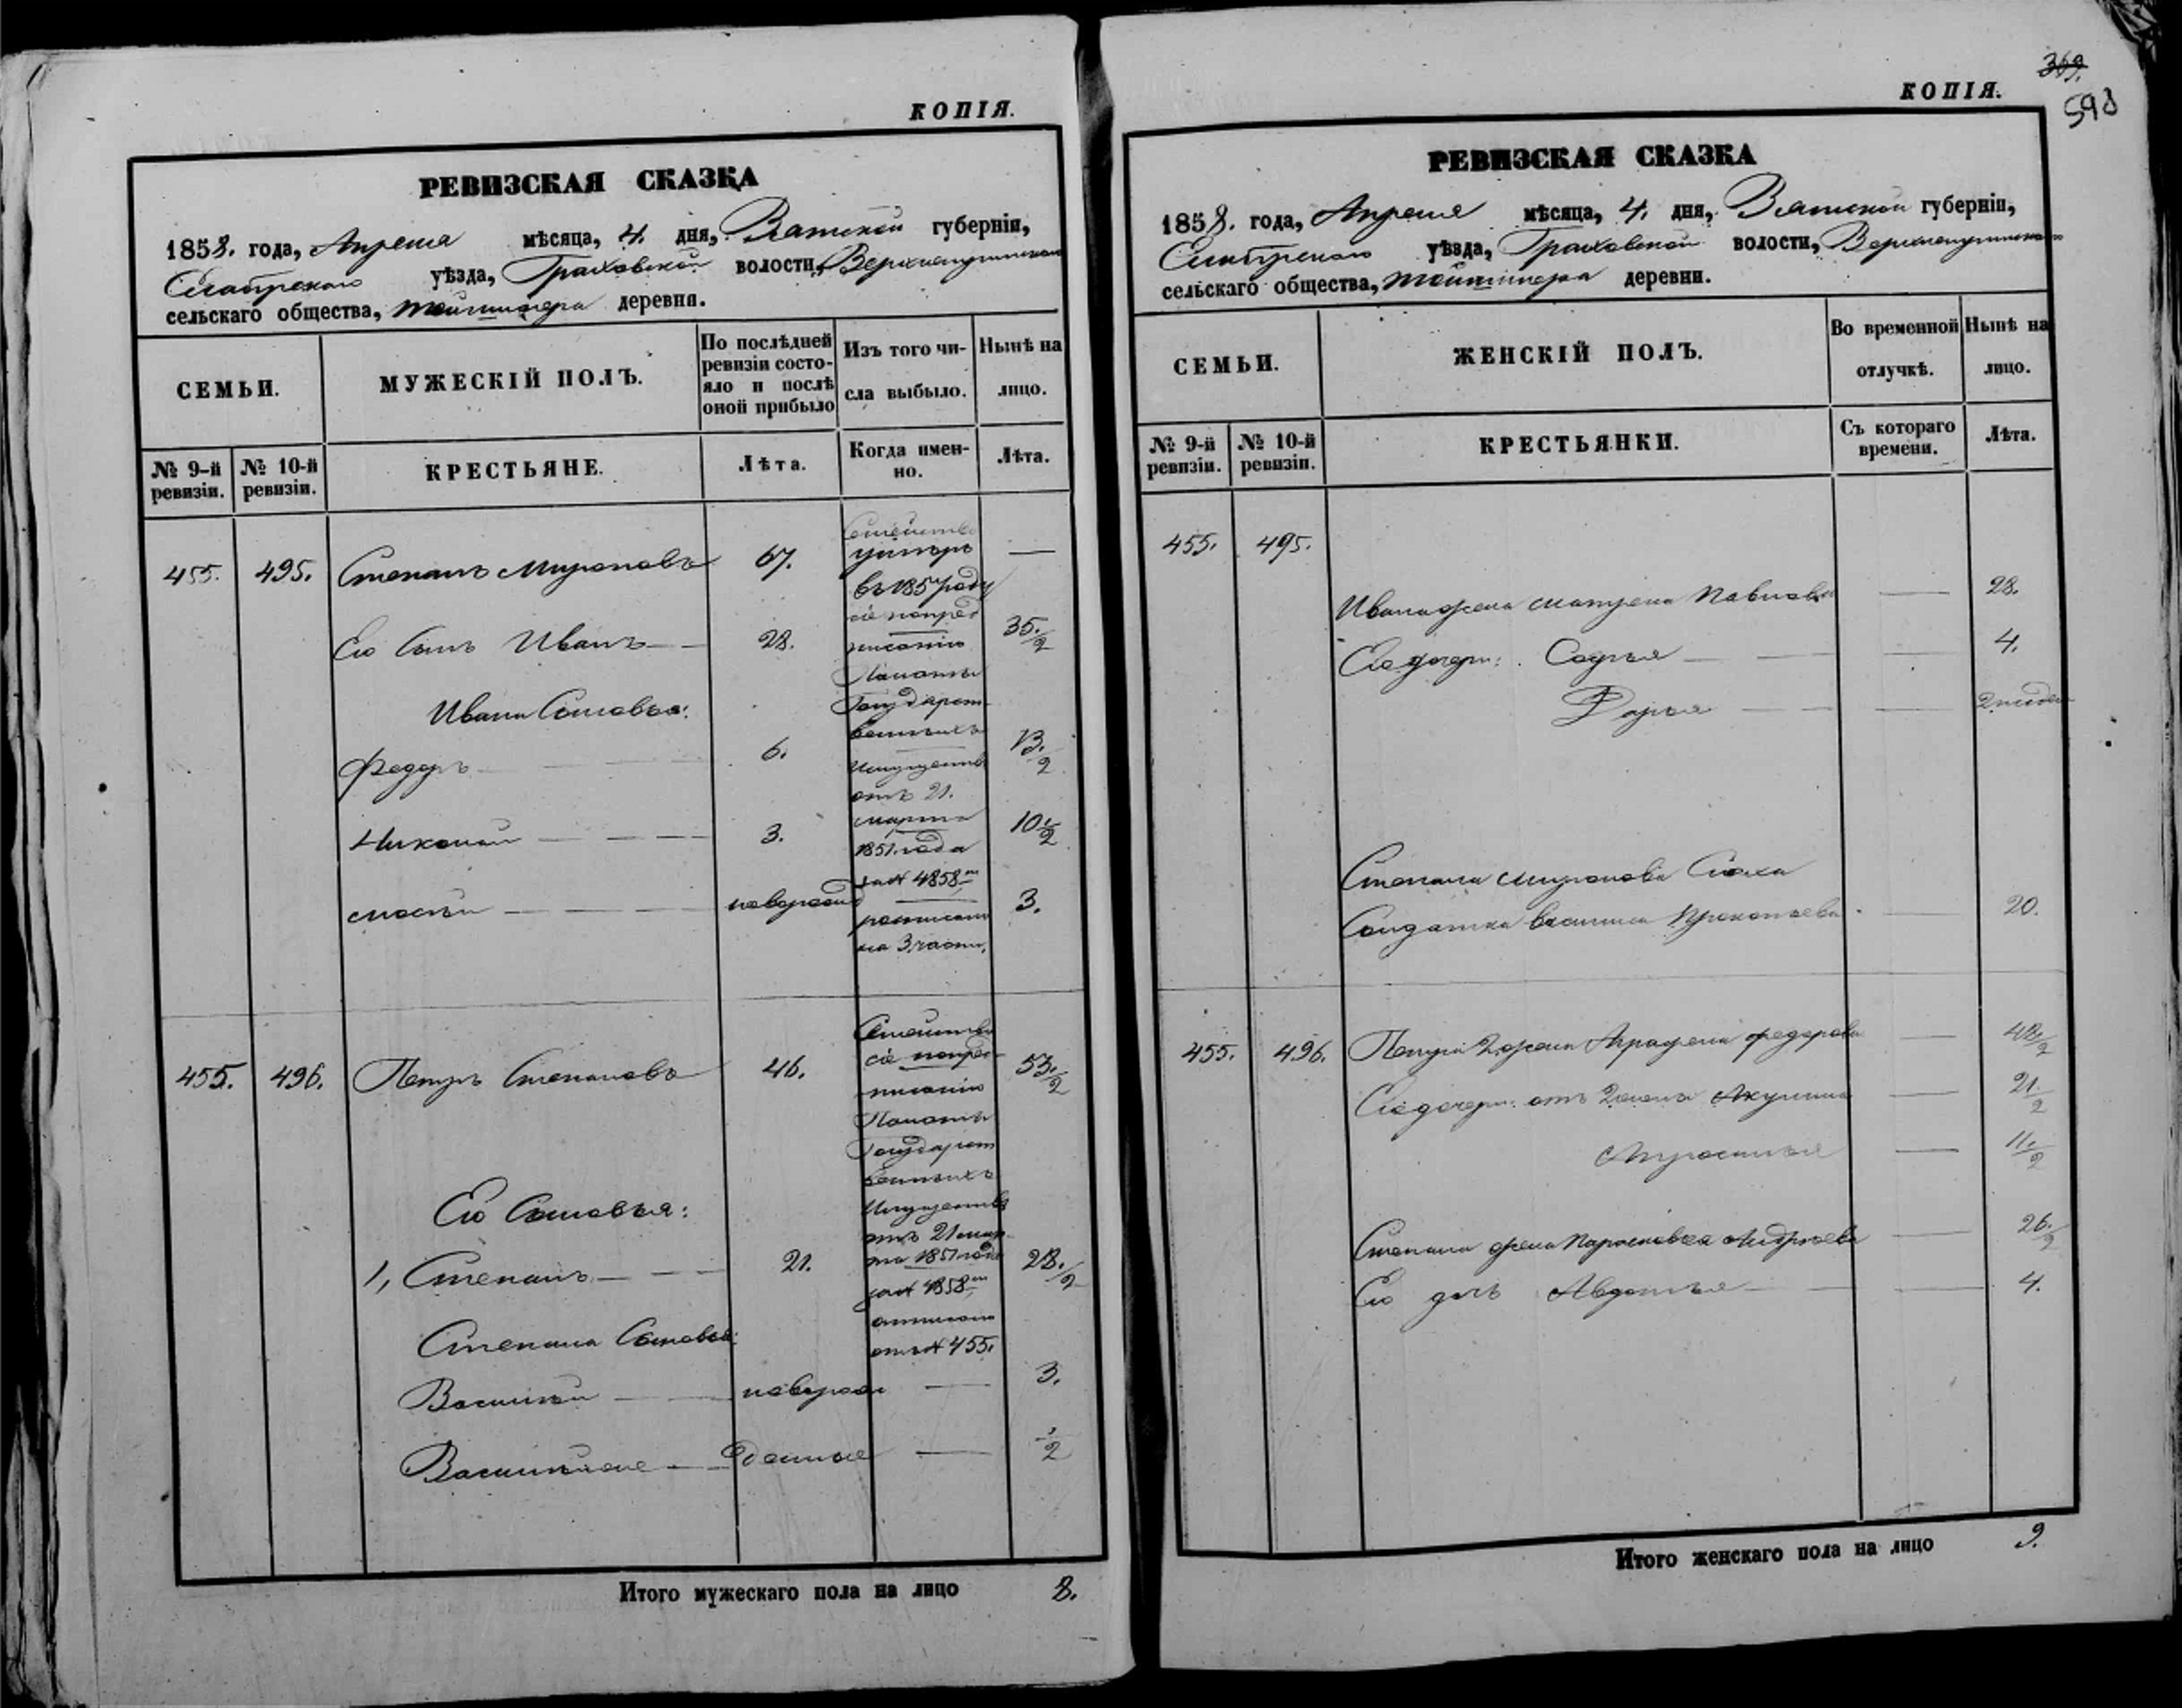 КОПІЯ.
РЕВИЗСКАЯ СКАЗКА
1858. года, Апреля мѣсяца, 4. дня, Вятской губерніи,
Елабужскаго уѣзда, Граховской волости,
сельскаго общества, деревня.
СЕМЬИ.
МУЖЕСКІЙ ПОЛЪ.
По послѣдней ревизіи состо-
яло и послѣ
оной прибыло
Изъ того чи-
сла выбыло.
Нынѣ на
лицо.
№ 9-й
ревизіи.
№ 10-й
ревизіи.
КРЕСТЬЯНЕ.
Лѣта.
Когда имен-
но.
Лѣта.
455. 495. Степанъ Мироновъ 67. умеръ —
въ 1857 году
Его Сынъ Иванъ 28. 35 1/2
Ивана Сыновья:
Федоръ 6. 13 1/2
Николай 3. 10 1/2
новорожд 3.
Семейство
сіе по пред-
писанію
Палаты
Государст
венныхъ
Имуществъ
отъ 21.
марта
1851 года
за № 4858
расписано
на 3 части.
455. 496. Петръ Степановъ 46. 53 1/2
Его Сыновья:
1, Степанъ 21. 28 1/2
Степана Сыновья:
Василій новорож — 3.
— 1/2
Семейство
сіе по пред-
писанію
Палаты
Государст
венныхъ
Имуществъ
отъ 21 мар-
та 1851 года
за № 4858
отписано
отъ № 455.
Итого мужескаго пола на лицо 8.
КОПІЯ.
369.
598
РЕВИЗСКАЯ СКАЗКА
1858. года, Апреля мѣсяца, 4. дня, Вятской губерніи,
Елабужскаго уѣзда, Граховской волости,
сельскаго общества, деревни.
СЕМЬИ.
ЖЕНСКІЙ ПОЛЪ.
Во временной
отлучкѣ.
Нынѣ на
лицо.
№ 9-й
ревизіи.
№ 10-й
ревизіи.
КРЕСТЬЯНКИ.
Съ котораго
времени.
Лѣта.
455. 495.
Ивана жена Матрена Павлова — 28.
Его дочери: Софья — 4.
Дарья —
Степана Миронова Сноха
Солдатка Василиса Прокопьева — 20.
455. 496. Петра 2 жена Аграфена Федорова — 48 1/2
Его дочери: отъ 2 жены Акулина — 21 1/2
— 11 1/2
Степана жена Парасковья Андреева — 26 1/2
Его дочь Авдотья — 4.
Итого женскаго пола на лицо 9.